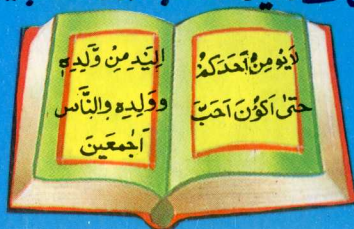 لَا يُومِنُ أَحَدَكُمْ
حَتّٰى اَكُوْنَ اَحَبَّ
اِلَيْهِ مِنْ وَّلَدِهٖ
وَوَلِدِهٖ وَالنَّاسِ
اَجْمَعِيْنَ